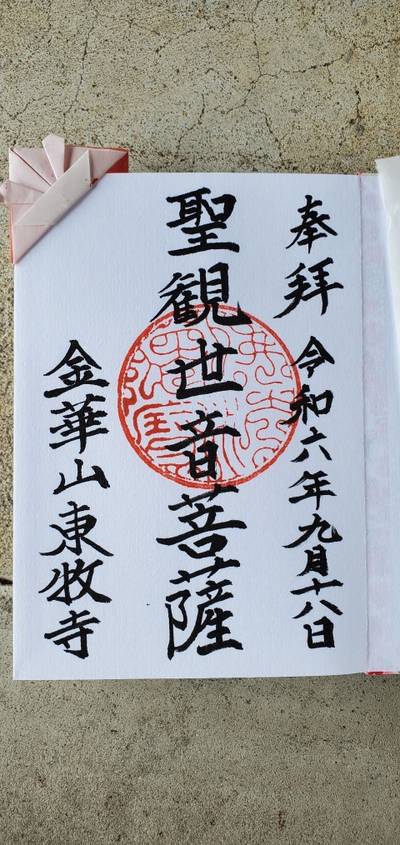 奉拝 令和六年九月十八日
聖観世音菩薩
金華山東牧寺